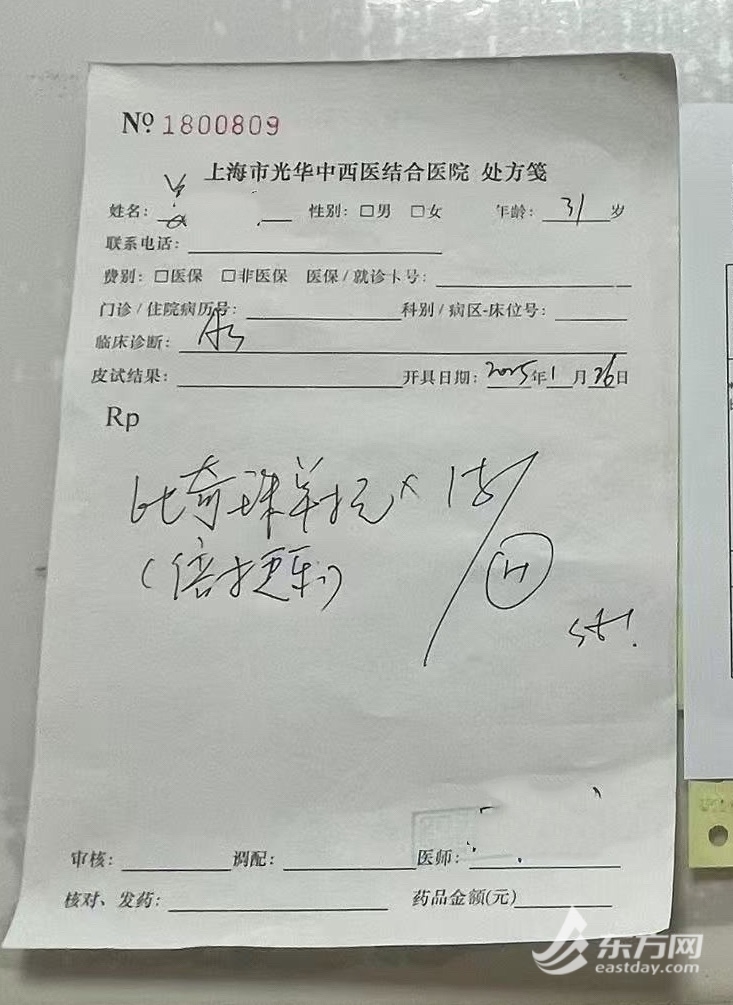 № 1800809
上海市光华中西医结合医院 处方笺
姓名： 性别：□男 □女 年龄：31岁
联系电话：
费别：□医保 □非医保 医保/就诊卡号：
门诊/住院病历号： 科别/病区-床位号：
临床诊断：AS
皮试结果： 开具日期：2025年1月26日
Rp
比奇珠单抗×1支
（倍捷乐）
H
st!
审核： 调配： 医师：
核对、发药： 药品金额(元)
东方网
eastday.com